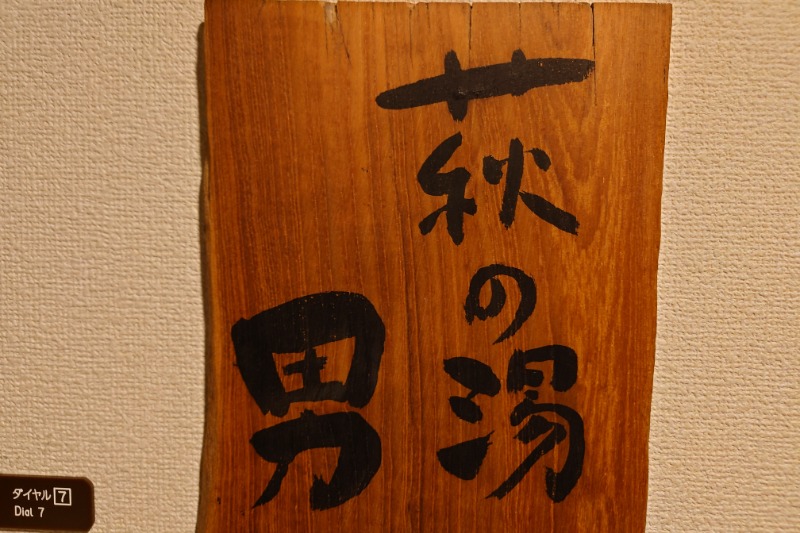 萩の湯
男
ダイヤル 7
Dial 7